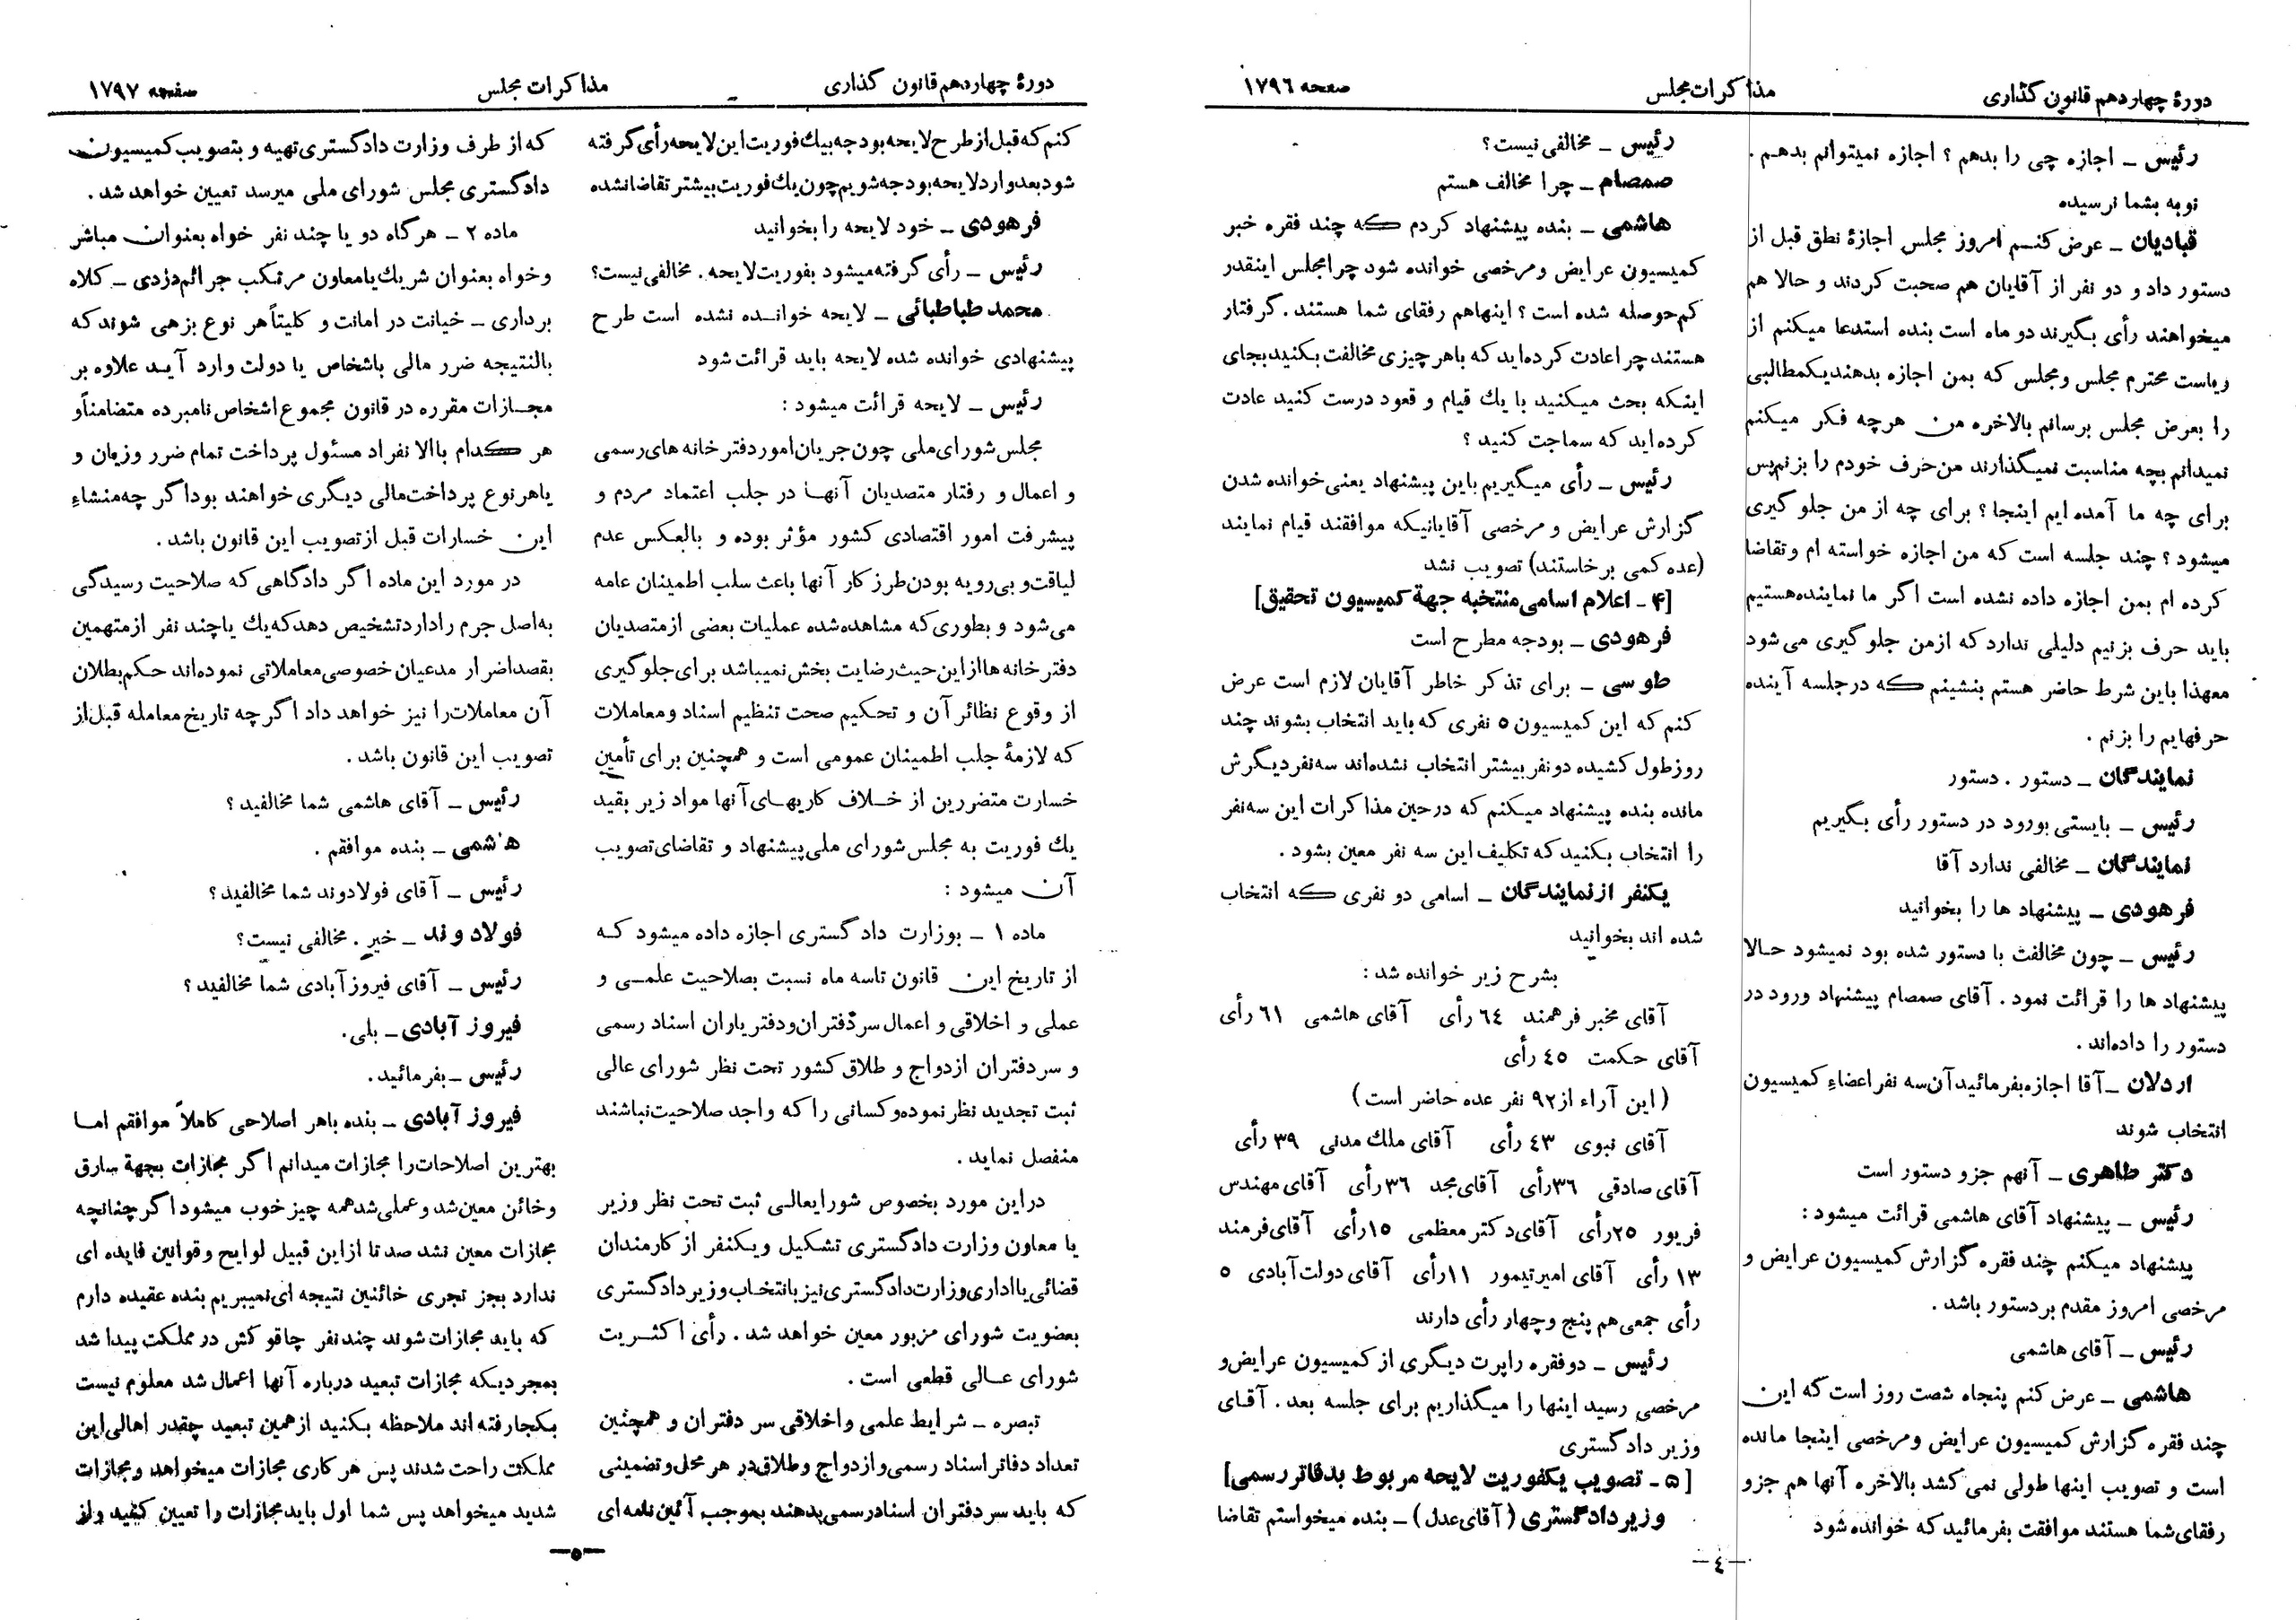 دورهٔ چهاردهم قانون گذاری
مذاکرات مجلس
صفحه ۱۷۹٦
رئیس ـ اجازه چی را بدهم ؟ اجازه نمیتوانم بدهم .
نوبه بشما نرسیده
قبادیان ـ عرض کنم امروز مجلس اجازهٔ نطق قبل از
دستور داد و دو نفر از آقایان هم صحبت کردند و حالا هم
میخواهند رأی بگیرند دو ماه است بنده استدعا میکنم از
ریاست محترم مجلس ومجلس که بمن اجازه بدهندیکمطالبی
را بعرض مجلس برسانم بالاخره من هرچه فکر میکنم
نمیدانم بچه مناسبت نمیگذارند من حرف خودم را بزنم پس
برای چه ما آمده ایم اینجا ؟ برای چه از من جلو گیری
میشود ؟ چند جلسه است که من اجازه خواسته ام وتقاضا
کرده ام بمن اجازه داده نشده است اگر ما نماینده هستیم
باید حرف بزنیم دلیلی ندارد که ازمن جلو گیری می شود
معهذا باین شرط حاضر هستم بنشینم که درجلسه آینده
حرفهایم را بزنم .
نمایندگان ـ دستور . دستور
رئیس ـ بایستی بورود در دستور رأی بگیریم
نمایندگان ـ مخالفی ندارد آقا
فرهودی ـ پیشنهاد ها را بخوانید
رئیس ـ چون مخالفت با دستور شده بود نمیشود حالا
پیشنهاد ها را قرائت نمود . آقای صمصام پیشنهاد ورود در
دستور را داده‌اند .
اردلان ـ آقا اجازه بفرمائید آن سه نفر اعضاء کمیسیون
انتخاب شوند
دکتر طاهری ـ آنهم جزو دستور است
رئیس ـ پیشنهاد آقای هاشمی قرائت میشود :
پیشنهاد میکنم چند فقره گزارش کمیسیون عرایض و
مرخصی امروز مقدم بردستور باشد .
رئیس ـ آقای هاشمی
هاشمی ـ عرض کنم پنجاه شصت روز است که این
چند فقره گزارش کمیسیون عرایض ومرخصی اینجا مانده
است و تصویب اینها طولی نمی کشد بالاخره آنها هم جزو
رفقای شما هستند موافقت بفرمائید که خوانده شود
رئیس ـ مخالفی نیست ؟
صمصام ـ چرا مخالف هستم
هاشمی ـ بنده پیشنهاد کردم که چند فقره خبر
کمیسیون عرایض ومرخصی خوانده شود چرا مجلس اینقدر
کم حوصله شده است ؟ اینهاهم رفقای شما هستند . گرفتار
هستند چرا عادت کرده اید که باهر چیزی مخالفت بکنید بجای
اینکه بحث میکنید با یك قیام و قعود درست کنید عادت
کرده اید که سماجت کنید ؟
رئیس ـ رأی میگیریم باین پیشنهاد یعنی خوانده شدن
گزارش عرایض و مرخصی آقایانیکه موافقند قیام نمایند
(عده کمی برخاستند) تصویب نشد
[۴ ـ اعلام اسامی منتخبه جهة کمیسیون تحقیق]
فرهودی ـ بودجه مطرح است
طوسی ـ برای تذکر خاطر آقایان لازم است عرض
کنم که این کمیسیون ۵ نفری که باید انتخاب بشوند چند
روز طول کشیده دو نفر بیشتر انتخاب نشده‌اند سه نفر دیگرش
مانده بنده پیشنهاد میکنم که درحین مذاکرات این سه نفر
را انتخاب بکنید که تکلیف این سه نفر معین بشود .
یکنفر ازنمایندگان ـ اسامی دو نفری که انتخاب
شده اند بخوانید
بشرح زیر خوانده شد :
آقای مخبر فرهمند ٦٤ رأی آقای هاشمی ٦١ رأی
آقای حکمت ٤٥ رأی
( این آراء از ۹۲ نفر عده حاضر است )
آقای نبوی ٤٣ رأی آقای ملك مدنی ۳۹ رأی
آقای صادقی ۳٦ رأی آقای مجد ۳٦ رأی آقای مهندس
فریور ۲۵ رأی آقای دکتر معظمی ۱۵ رأی آقای فرمند
۱۳ رأی آقای امیرتیمور ۱۱ رأی آقای دولت آبادی ۵
رأی جمعی هم پنج وچهار رأی دارند
رئیس ـ دو فقره راپرت دیگری از کمیسیون عرایض و
مرخصی رسید اینها را میگذاریم برای جلسه بعد . آقای
وزیر دادگستری
[۵ ـ تصویب یکفوریت لایحه مربوط بدفاتر رسمی]
وزیر دادگستری (آقای عدل) ـ بنده میخواستم تقاضا
ـ٤ـ
دورهٔ چهاردهم قانون گذاری
مذاکرات مجلس
صفحه ۱۷۹۷
کنم که قبل از طرح لایحه بودجه بیك فوریت این لایحه رأی گرفته
شود بعد وارد لایحه بودجه شویم چون یك فوریت بیشتر تقاضا نشده
فرهودی ـ خود لایحه را بخوانید
رئیس ـ رأی گرفته میشود بفوریت لایحه . مخالفی نیست؟
محمد طباطبائی ـ لایحه خوانده نشده است طرح
پیشنهادی خوانده شده لایحه باید قرائت شود
رئیس ـ لایحه قرائت میشود :
مجلس شورای ملی چون جریان امور دفتر خانه های رسمی
و اعمال و رفتار متصدیان آنها در جلب اعتماد مردم و
پیشرفت امور اقتصادی کشور مؤثر بوده و بالعکس عدم
لیاقت و بی رویه بودن طرز کار آنها باعث سلب اطمینان عامه
می شود و بطوری که مشاهده شده عملیات بعضی از متصدیان
دفتر خانه ها از این حیث رضایت بخش نمیباشد برای جلوگیری
از وقوع نظائر آن و تحکیم صحت تنظیم اسناد ومعاملات
که لازمهٔ جلب اطمینان عمومی است و همچنین برای تأمین
خسارت متضررین از خلاف کاریهای آنها مواد زیر بقید
یك فوریت به مجلس شورای ملی پیشنهاد و تقاضای تصویب
آن میشود :
ماده ۱ ـ بوزارت دادگستری اجازه داده میشود که
از تاریخ این قانون تاسه ماه نسبت بصلاحیت علمی و
عملی و اخلاقی و اعمال سردفتران و دفتر یاران اسناد رسمی
و سردفتران ازدواج و طلاق کشور تحت نظر شورای عالی
ثبت تجدید نظر نموده و کسانی را که واجد صلاحیت نباشند
منفصل نماید .
دراین مورد بخصوص شورایعالی ثبت تحت نظر وزیر
یا معاون وزارت دادگستری تشکیل ویکنفر از کارمندان
قضائی یا اداری وزارت دادگستری نیز بانتخاب وزیر دادگستری
بعضویت شورای مزبور معین خواهد شد . رأی اکثریت
شورای عالی قطعی است .
تبصره ـ شرایط علمی و اخلاقی سر دفتران و همچنین
تعداد دفاتر اسناد رسمی و ازدواج و طلاق در هر محل و تضمینی
که باید سردفتران اسناد رسمی بدهند بموجب آئین نامه ای
که از طرف وزارت دادگستری تهیه و بتصویب کمیسیون
دادگستری مجلس شورای ملی میرسد تعیین خواهد شد .
ماده ۲ ـ هرگاه دو یا چند نفر خواه بعنوان مباشر
وخواه بعنوان شریك یا معاون مرتکب جرائم دزدی ـ کلاه
برداری ـ خیانت در امانت و کلیتاً هر نوع بزهی شوند که
بالنتیجه ضرر مالی باشخاص یا دولت وارد آید علاوه بر
مجازات مقرره در قانون مجموع اشخاص نامبرده متضامناً و
هر کدام باالانفراد مسئول پرداخت تمام ضرر وزیان و
یا هر نوع پرداخت مالی دیگری خواهند بود اگر چه منشاء
این خسارات قبل از تصویب این قانون باشد .
در مورد این ماده اگر دادگاهی که صلاحیت رسیدگی
به اصل جرم را دارد تشخیص دهد که یك یا چند نفر از متهمین
بقصد اضرار مدعیان خصوصی معاملاتی نموده‌اند حکم بطلان
آن معاملات را نیز خواهد داد اگر چه تاریخ معامله قبل از
تصویب این قانون باشد .
رئیس ـ آقای هاشمی شما مخالفید ؟
هاشمی ـ بنده موافقم .
رئیس ـ آقای فولادوند شما مخالفید ؟
فولادوند ـ خیر . مخالفی نیست؟
رئیس ـ آقای فیروز آبادی شما مخالفید ؟
فیروز آبادی ـ بلی.
رئیس ـ بفرمائید.
فیروز آبادی ـ بنده باهر اصلاحی کاملاً موافقم اما
بهترین اصلاحات را مجازات میدانم اگر مجازات بجهة سارق
وخائن معین شد و عملی شد همه چیز خوب میشود اگر چنانچه
مجازات معین نشد صد تا از این قبیل لوایح وقوانین فایده ای
ندارد بجز تجری خائنین نتیجه ای نمیبریم بنده عقیده دارم
که باید مجازات شوند چند نفر چاقو کش در مملکت پیدا شد
بمجردیکه مجازات تبعید درباره آنها اعمال شد معلوم نیست
بکجا رفته اند ملاحظه بکنید از همین تبعید چقدر اهالی این
مملکت راحت شدند پس هر کاری مجازات میخواهد و مجازات
شدید میخواهد پس شما اول باید مجازات را تعیین کنید و از
ـ۵ـ